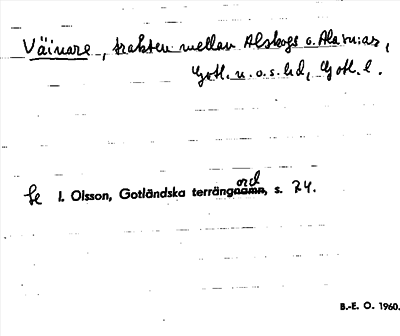 Väinare, trakten mellan Alskogs o. Ala m:ar,
Gotl. n. o. s. hd, Gotl. l.
Se I. Olsson, Gotländska terrängord, s. 24.
B.-E. O. 1960.